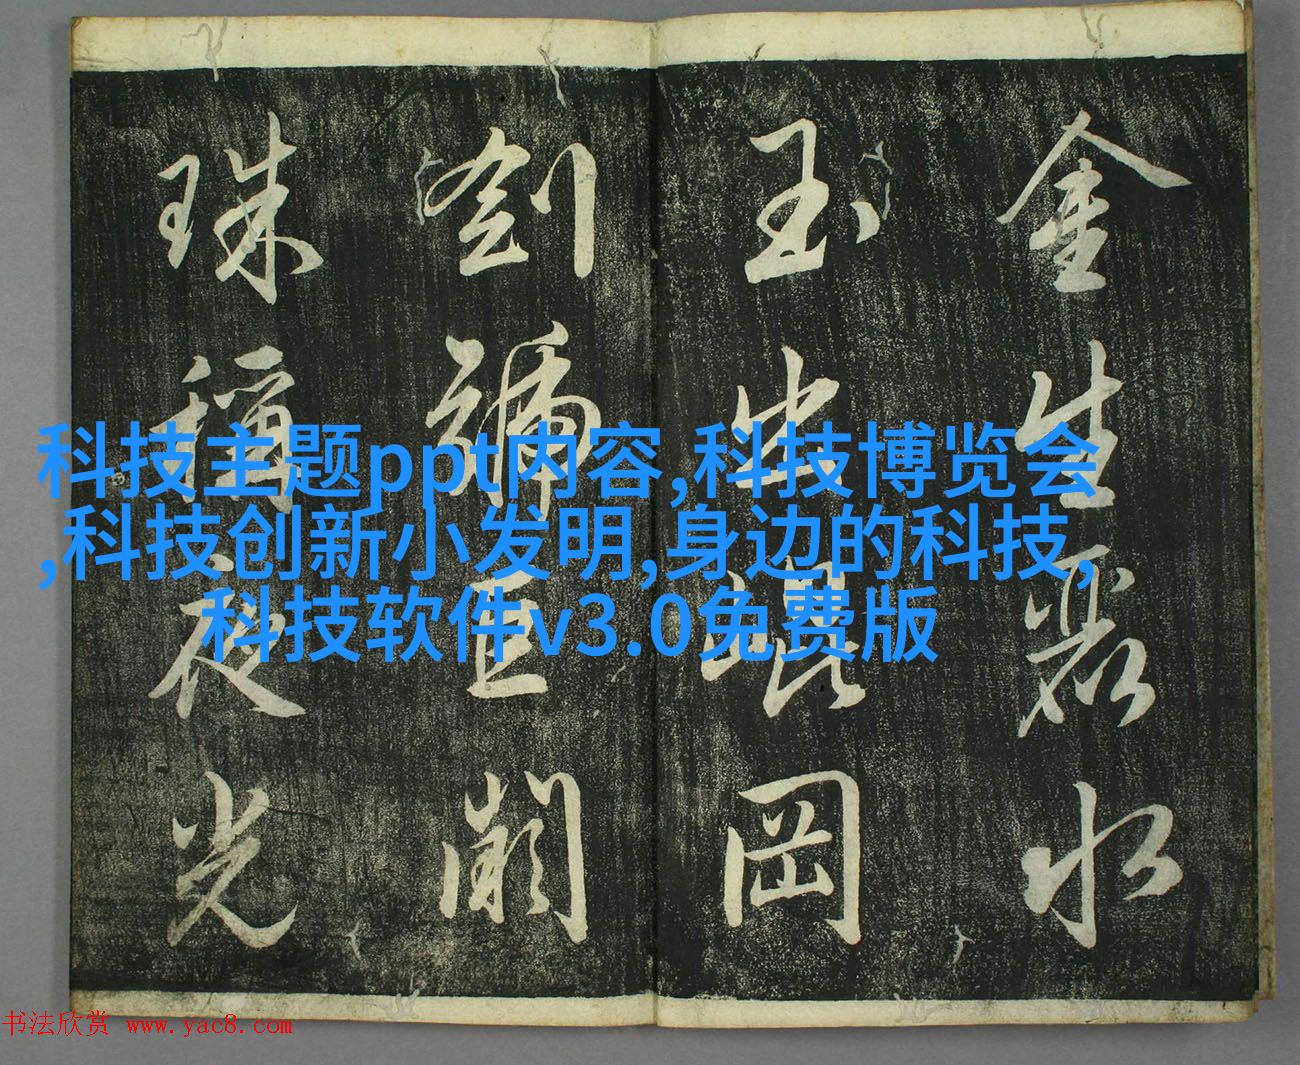 金生麗水
玉出崐岡
劍號巨闕
珠稱夜光
科技主题ppt内容,科技博览会
,科技创新小发明,身边的科技,
科技软件v3.0免费版
书法欣赏 www.yac8.com